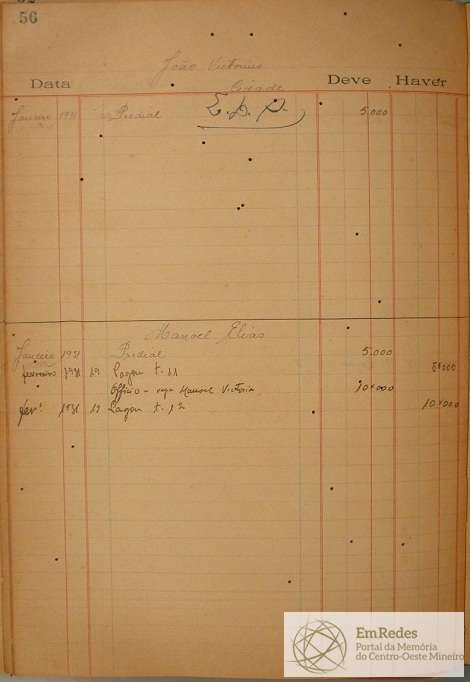 56
João Victorino
Cidade
Data Deve Haver
Janeiro 1931 Predial 5.000
Manoel Elias
Janeiro 1931 Predial 5.000
fevereiro 1931 19 Pagou t. 11 5$000
Officio - veja Manoel Victorino 10$000
fevº 1931 19 Pagou t. 12 10$000
EmRedes
Portal da Memória
do Centro-Oeste Mineiro